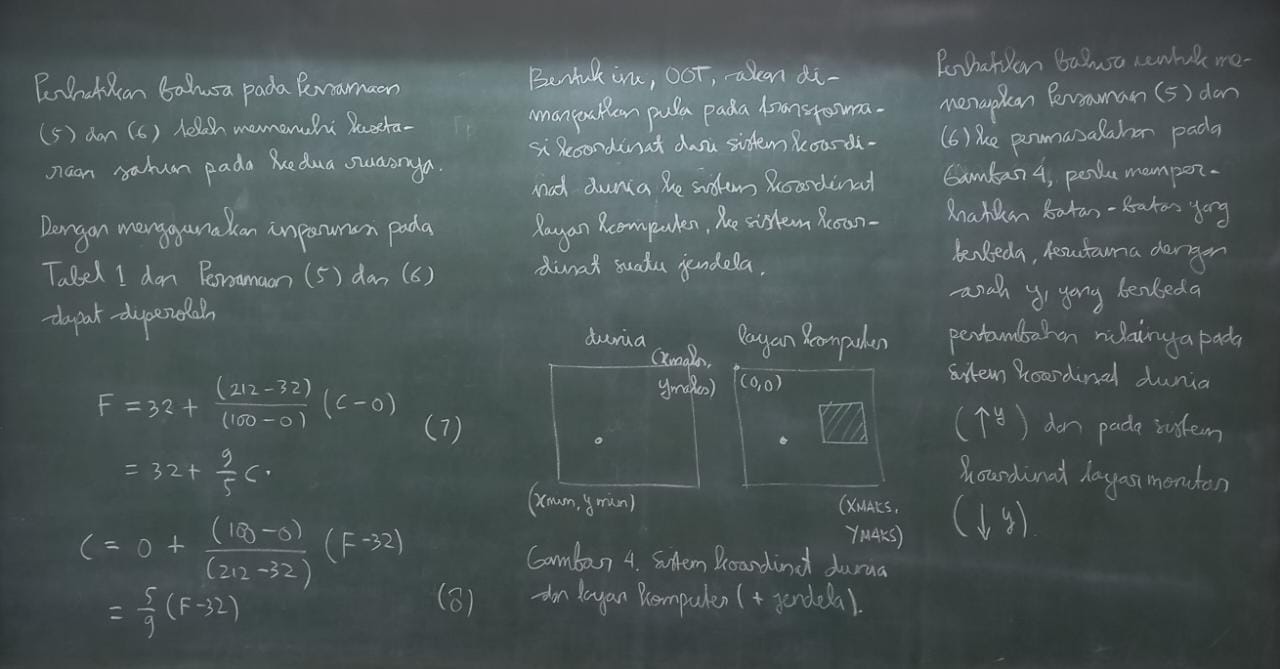 Perhatikan bahwa pada Persamaan
(5) dan (6) telah memenuhi kaseta-
raan satuan pada kedua ruasnya.
Dengan menggunakan informasi pada
Tabel 1 dan Persamaan (5) dan (6)
dapat diperoleh
F = 32 + (212-32)/(100-0) (C-0)
(7)
= 32 + 9/5 C.
C = 0 + (100-0)/(212-32) (F-32)
= 5/9 (F-32)
(8)
Bentuk ini, OOT, akan di-
manfaatkan pula pada transforma-
si koordinat dari sistem koordi-
nat dunia ke sistem koordinat
layar komputer, ke sistem koor-
dinat suatu jendela.
dunia
(xmaks,
ymaks)
(xmin, ymin)
layar komputer
(0,0)
(XMAKS,
YMAKS)
Gambar 4. Sistem koordinat dunia
dan layar komputer (+ jendela).
Perhatikan bahwa untuk me-
nerapkan Persamaan (5) dan
(6) ke permasalahan pada
Gambar 4, perlu memper-
hatikan batas-batas yang
berbeda, terutama dengan
arah y, yang berbeda
pertambahan nilainya pada
sistem koordinat dunia
(↑y) dan pada sistem
koordinat layar monitor
(↓y).